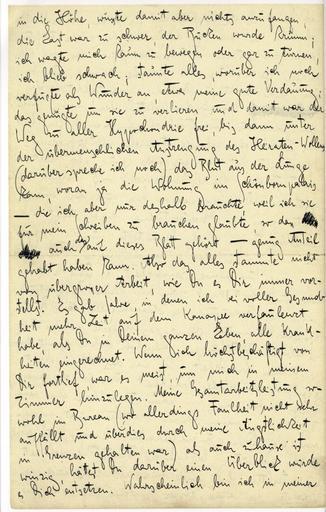 in die Höhe, wusste damit aber nichts anzufangen,
die Last war zu schwer der Rücken wurde krumm;
ich wagte mich kaum zu bewegen oder gar zu turnen,
ich blieb schwach; staunte alles, worüber ich noch
verfügte als Wunder an etwa meine gute Verdauung;
das genügte um sie zu verlieren und damit war der
Weg zu aller Hypochondrie frei bis dann unter
der übermenschlichen Anstrengung des Heiraten-Wollens
(darüber spreche ich noch) das Blut aus der Lunge
kam, woran ja die Wohnung im Schönbornpalais
— die ich aber nur deshalb brauchte weil ich sie
für mein Schreiben zu brauchen glaubte, so dass
auch das auf dieses Blatt gehört — genug Anteil
gehabt haben kann. Also das alles stammte nicht
von übergrosser Arbeit, wie Du es Dir immer vor-
stellst. Es gab Jahre in denen ich bei voller Gesund-
heit mehr Zeit auf dem Kanapee verfaulenzt
habe, als Du in Deinem ganzen Leben alle Krank-
heiten eingerechnet. Wenn ich höchstbeschäftigt von
Dir fortlief, war es meist, um mich in meinem
Zimmer hinzulegen. Meine Gesamtarbeitsleistung so-
wohl im Bureau (wo allerdings Faulheit nicht sehr
auffällt und überdies durch meine Ängstlichkeit
in Grenzen gehalten war) als auch zuhause ist
winzig, hättest Du darüber einen Überblick würde
es Dich entsetzen. Wahrscheinlich bin ich in meiner